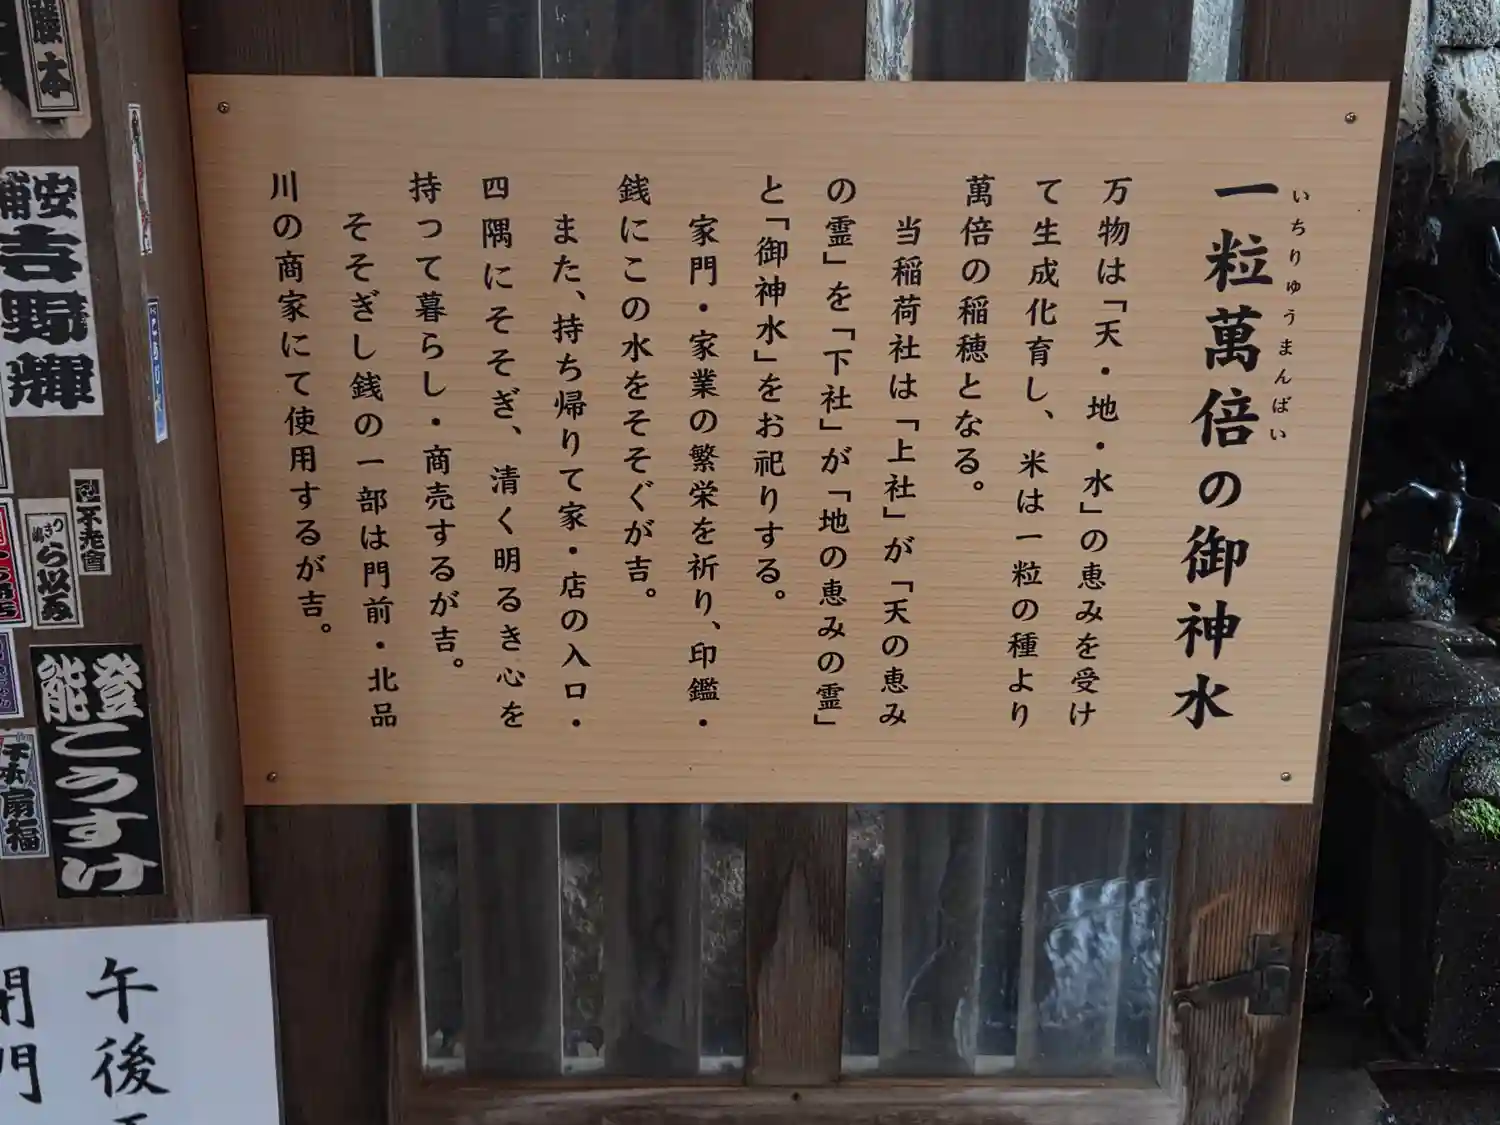 一粒萬倍の御神水
いちりゅうまんばい
万物は「天・地・水」の恵みを受け
て生成化育し、米は一粒の種より
萬倍の稲穂となる。
当稲荷社は「上社」が「天の恵み
の霊」を「下社」が「地の恵みの霊」
と「御神水」をお祀りする。
家門・家業の繁栄を祈り、印鑑・
銭にこの水をそそぐが吉。
また、持ち帰りて家・店の入口・
四隅にそそぎ、清く明るき心を
持つて暮らし・商売するが吉。
そそぎし銭の一部は門前・北品
川の商家にて使用するが吉。
藤本
安浦
吉野輝
不老會
能登
こうすけ
扇福
午後
開門